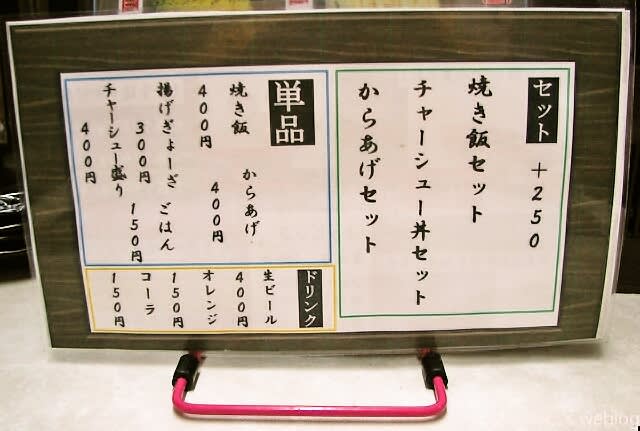 セット ＋２５０
焼き飯セット
チャーシュー丼セット
からあげセット
単品
焼き飯 からあげ
４００円 ４００円
揚げぎょーざ ごはん
３００円 １５０円
チャーシュー盛り
４００円
ドリンク
生ビール
４００円
オレンジ
１５０円
コーラ
１５０円
weblog